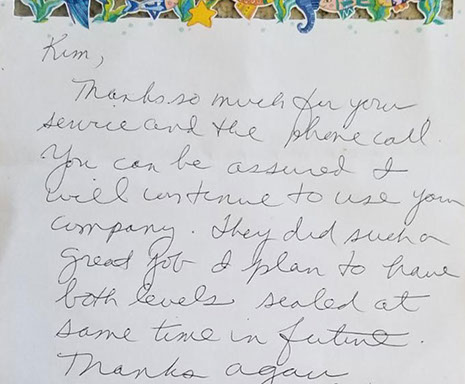 Kim,
Thanks so much for your
service and the phone call.
You can be assured I
will continue to use your
company. They did such a
great job I plan to have
both levels sealed at
same time in future.
Thanks again